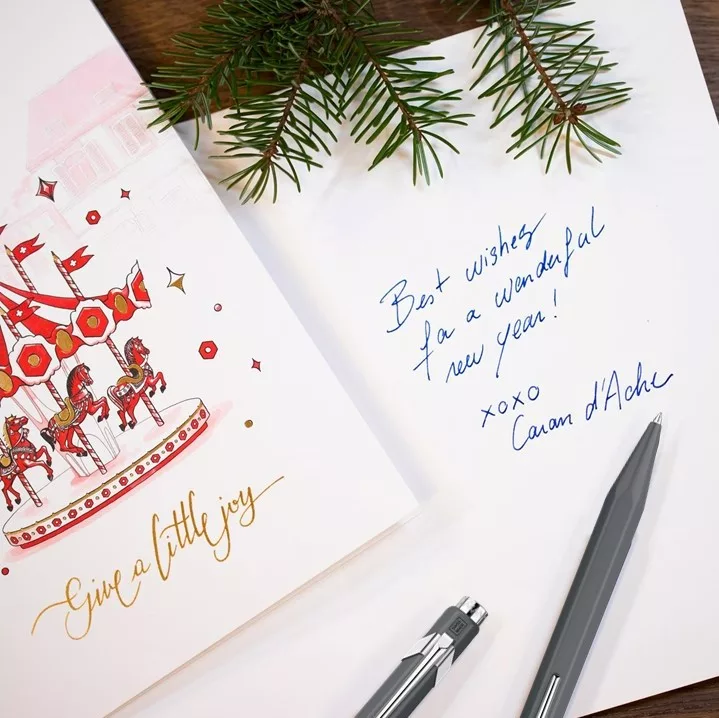 Give a little joy
Best wishes
for a wonderful
new year!
xoxo
Caran d'Ache